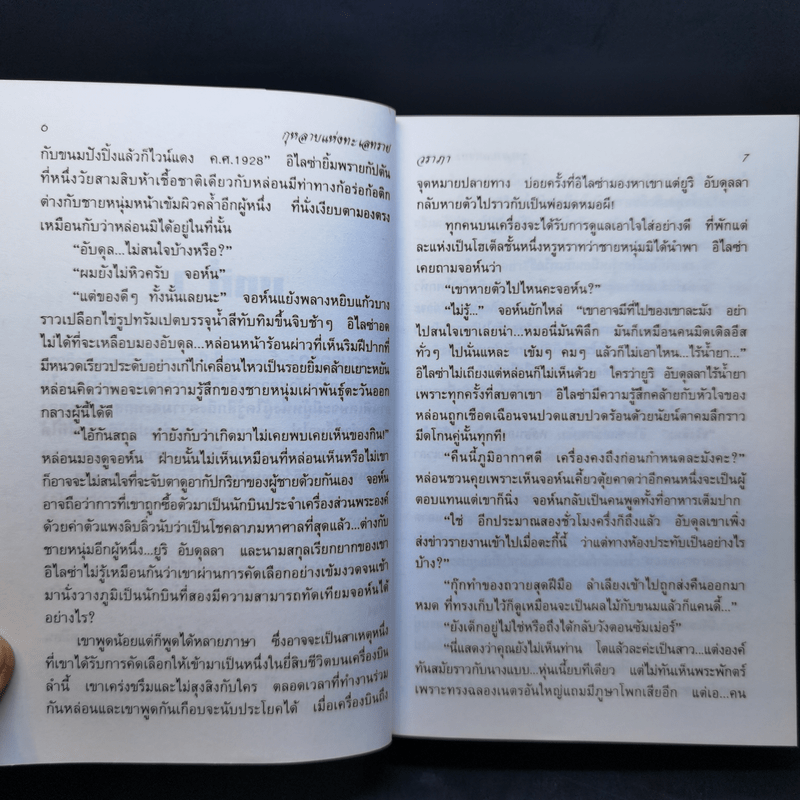 ๖
กุหลาบแห่งทะเลทราย
กับขนมปังปิ้งแล้วก็ไวน์แดง ค.ศ.1928” อิไลซ่ายิ้มพรายกัปตัน
ที่หนึ่งวัยสามสิบห้าเชื้อชาติเดียวกับหล่อนมีท่าทางก้อร่อก้อติก
ต่างกับชายหนุ่มหน้าเข้มผิวคล้ำอีกผู้หนึ่ง ที่นั่งเงียบตามองตรง
เหมือนกับว่าหล่อนมิได้อยู่ในที่นั้น
“อับดุล...ไม่สนใจบ้างหรือ?”
“ผมยังไม่หิวครับ จอห์น”
“แต่ของดีๆ ทั้งนั้นเลยนะ” จอห์นแย้งพลางหยิบแก้วบาง
ราวเปลือกไข่รูปทรัมเปตบรรจุน้ำสีทับทิมขึ้นจิบช้าๆ อิไลซ่าอด
ไม่ได้ที่จะเหลือบมองอับดุล...หล่อนหน้าร้อนผ่าวที่เห็นริมฝีปากที่
มีหนวดเรียวประดับอย่างเก๋ไก๋เคลื่อนไหวเป็นรอยยิ้มคล้ายเยาะหยัน
หล่อนคิดว่าพอจะเดาความรู้สึกของชายหนุ่มเผ่าพันธุ์ตะวันออก
กลางผู้นี้ได้ดี
“ไอ้กันสถุล ทำยังกับว่าเกิดมาไม่เคยพบเคยเห็นของกิน!”
หล่อนมองดูจอห์น ฝ่ายนั้นไม่เห็นเหมือนที่หล่อนเห็นหรือไม่เขา
ก็อาจจะไม่สนใจที่จะจับตาดูอากัปกริยาของผู้ชายด้วยกันเอง จอห์น
อาจถือว่าการที่เขาถูกซื้อตัวมาเป็นนักบินประจำเครื่องส่วนพระองค์
ด้วยค่าตัวแพงลิบลิ่วนับว่าเป็นโชคลาภมหาศาลที่สุดแล้ว...ต่างกับ
ชายหนุ่มอีกผู้หนึ่ง...ยูริ อับดุลลา และนามสกุลเรียกยากของเขา
อิไลซ่าไม่รู้เหมือนกันว่าเขาผ่านการคัดเลือกอย่างเข้มงวดจนเข้า
มานั่งวางภูมิเป็นนักบินที่สองมีความสามารถทัดเทียมจอห์นได้
อย่างไร?
เขาพูดน้อยแต่ก็พูดได้หลายภาษา ซึ่งอาจจะเป็นสาเหตุหนึ่ง
ที่เขาได้รับการคัดเลือกให้เข้ามาเป็นหนึ่งในยี่สิบชีวิตบนเครื่องบิน
ลำนี้ เขาเคร่งขรึมและไม่สุงสิงกับใคร ตลอดเวลาที่ทำงานร่วม
กันหล่อนและเขาพูดกันเกือบจะนับประโยคได้ เมื่อเครื่องบินถึง
วราภา
7
จุดหมายปลายทาง บ่อยครั้งที่อิไลซ่ามองหาเขาแต่ยูริ อับดุลลา
กลับหายตัวไปราวกับเป็นพ่อมดหมอผี!
ทุกคนบนเครื่องจะได้รับการดูแลเอาใจใส่อย่างดี ที่พักแต่
ละแห่งเป็นโฮเต็ลชั้นหนึ่งหรูหราทว่าชายหนุ่มมิได้นำพา อิไลซ่า
เคยถามจอห์นว่า
“เขาหายตัวไปไหนคะจอห์น?”
“ไม่รู้...” จอห์นยักไหล่ “เขาอาจมีที่ไปของเขาละมัง อย่า
ไปสนใจเขาเลยน่า...หมอนี่มันพิลึก มันก็เหมือนคนมิดเดิลอีส
ทั่วๆ ไปนั่นแหละ เข้มๆ คมๆ แล้วก็ไม่เอาไหน...ไร้น้ำยา...”
อิไลซ่าไม่เถียงแต่หล่อนก็ไม่เห็นด้วย ใครว่ายูริ อับดุลลาไร้น้ำยา
เพราะทุกครั้งที่สบตาเขา อิไลซ่ามีความรู้สึกคล้ายกับหัวใจของ
หล่อนถูกเชือดเฉือนจนปวดแสบปวดร้อนด้วยนัยน์ตาคมลึกราว
มีดโกนคู่นั้นทุกที!
“คืนนี้ภูมิอากาศดี เครื่องคงถึงก่อนกำหนดละมังคะ?”
หล่อนชวนคุยเพราะเห็นจอห์นเคี้ยวตุ้ยคาดว่าอีกคนหนึ่งจะเป็นผู้
ตอบแทนแต่เขาก็นิ่ง จอห์นกลับเป็นคนพูดทั้งที่อาหารเต็มปาก
“ใช่ อีกประมาณสองชั่วโมงครึ่งก็ถึงแล้ว อับดุลเขาเพิ่ง
ส่งข่าวรายงานเข้าไปเมื่อตะกี้นี้ ว่าแต่ทางห้องประทับเป็นอย่างไร
บ้าง?”
“กุ๊กทำของถวายสุดฝีมือ ลำเลียงเข้าไปถูกส่งคืนออกมา
หมด ที่ทรงเก็บไว้ก็ดูเหมือนจะเป็นผลไม้กับขนมแล้วก็แคนดี้...”
“ยังเด็กอยู่ไม่ใช่หรือถึงได้กลับวังตอนซัมเม่อร์”
“นี่แสดงว่าคุณยังไม่เห็นท่าน โตแล้วล่ะค่ะเป็นสาว...แต่งองค์
ทันสมัยราวกับนางแบบ...หุ่นเนี้ยบทีเดียว แต่ไม่ทันเห็นพระพักตร์
เพราะทรงฉลองเนตรอันใหญ่แถมมีภูษาโพกเสียอีก แต่เอ...คน